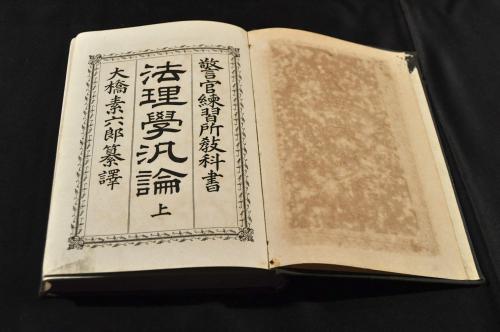 警官練習所教科書
法理學汎論 上
大橋素六郎纂譯